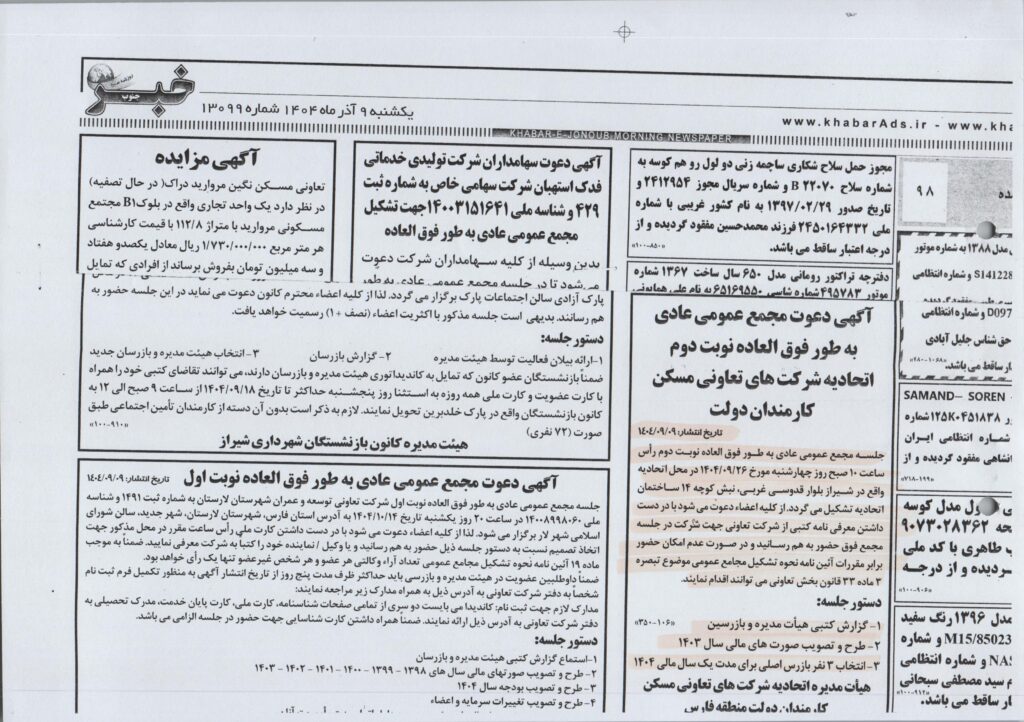 خبر
جنوب
یکشنبه ۹ آذر ماه ۱۴۰۴ شماره ۱۳۰۹۹
www.khabarAds.ir - www.kha
KHABAR-E-JONOUB MORNING NEWSPAPER
۹۸
ده
مدل ۱۳۸۸ به شماره موتور
S141228 و شماره انتظامی
D097 و شماره انتظامی
حق شناس جلیل آبادی
ار ساقط می باشد.
«۲۸۰-۱۰۶۸»
SAMAND- SOREN
ر ۱۲۵K۰۴۵۱۸۳۸ شماره
شماره انتظامی ایران
انشاهی مفقود گردیده و از
«۷۱۸-۱۹۹»
ول مدل کوسه
حه ۹۰۷۳۰۲۸۳۶۲
ب طاهری با کد ملی
سردیده و از درجه
«۱۰۰-۹۰۶»
مدل ۱۳۹۶ رنگ سفید
M15/85023
NAS و شماره
ن و شماره انتظامی
م سید مصطفی سبحانی
ار ساقط می باشد.
«۱۰۰-۹۱۲»
مجوز حمل سلاح شکاری ساچمه زنی دو لول رو هم کوسه به
شماره سلاح B ۲۲۰۷۰ و شماره سریال مجوز ۲۴۱۲۹۵۴
تاریخ صدور ۱۳۹۷/۰۲/۲۹ به نام کشور غریبی با شماره
ملی ۲۴۵۰۱۶۴۳۳۲ فرزند محمدحسین مفقود گردیده و از
درجه اعتبار ساقط می باشد.
«۱۰۰-۸۵۰»
دفترچه تراکتور رومانی مدل ۶۵۰ سال ساخت ۱۳۶۷ شماره
موتور ۴۹۵۷۸۳ شماره شاسی ۶۵۱۶۹۵۵۰ به نام علی همایونی
آگهی دعوت مجمع عمومی عادی
به طور فوق العاده نوبت دوم
اتحادیه شرکت های تعاونی مسکن
کارمندان دولت
تاریخ انتشار: ۱۴۰۴/۰۹/۰۹
جلسه مجمع عمومی عادی به طور فوق العاده نوبت دوم رأس
ساعت ۱۰ صبح روز چهارشنبه مورخ ۱۴۰۴/۰۹/۲۶ در محل اتحادیه
واقع در شیراز بلوار قدوسی غربی، نبش کوچه ۱۴ ساختمان
اتحادیه تشکیل می گردد. از کلیه اعضاء دعوت می شود با در دست
داشتن معرفی نامه کتبی از شرکت تعاونی جهت شرکت در جلسه
مجمع فوق حضور به هم رسانید و در صورت عدم امکان حضور
برابر مقررات آئین نامه نحوه تشکیل مجامع عمومی موضوع تبصره
۳ ماده ۳۳ قانون بخش تعاونی می توانند اقدام نمایند.
دستور جلسه:
۱- گزارش کتبی هیأت مدیره و بازرسین
«۳۵۰-۱۰۶»
۲- طرح و تصویب صورت های مالی سال ۱۴۰۳
۳- انتخاب ۳ نفر بازرس اصلی برای مدت یک سال مالی ۱۴۰۴
هیأت مدیره اتحادیه شرکت های تعاونی مسکن
کارمندان دولت منطقه فارس
آگهی دعوت سهامداران شرکت تولیدی خدماتی
فدک استهبان شرکت سهامی خاص به شماره ثبت
۴۲۹ و شناسه ملی ۱۴۰۰۳۱۵۱۶۴۱ جهت تشکیل
مجمع عمومی عادی به طور فوق العاده
بدین وسیله از کلیه سهامداران شرکت دعوت
می شود تا در جلسه مجمع عمومی عادی به طور
آگهی مزایده
تعاونی مسکن نگین مروارید دراک( در حال تصفیه)
در نظر دارد یک واحد تجاری واقع در بلوک B1 مجتمع
مسکونی مروارید با متراژ ۱۱۲/۸ با قیمت کارشناسی
هر متر مربع ۱/۷۳۰/۰۰۰/۰۰۰ ریال معادل یکصدو هفتاد
و سه میلیون تومان بفروش برساند از افرادی که تمایل
پارک آزادی سالن اجتماعات پارک برگزار می گردد. لذا از کلیه اعضاء محترم کانون دعوت می نماید در این جلسه حضور به
هم رسانند. بدیهی است جلسه مذکور با اکثریت اعضاء (نصف + ۱) رسمیت خواهد یافت.
دستور جلسه:
۱-ارائه بیلان فعالیت توسط هیئت مدیره ۲- گزارش بازرسان ۳-انتخاب هیئت مدیره و بازرسان جدید
ضمناً بازنشستگان عضو کانون که تمایل به کاندیداتوری هیئت مدیره و بازرسان دارند، می توانند تقاضای کتبی خود را همراه
با کارت عضویت و کارت ملی همه روزه به استثنا روز پنجشنبه حداکثر تا تاریخ ۱۴۰۴/۰۹/۱۸ از ساعت ۹ صبح الی ۱۲ به
کانون بازنشستگان واقع در پارک خلدبرین تحویل نمایند. لازم به ذکر است بدون آن دسته از کارمندان تأمین اجتماعی طبق
صورت (۷۲ نفری)
«۱۰۰-۹۱۰»
هیئت مدیره کانون بازنشستگان شهرداری شیراز
آگهی دعوت مجمع عمومی عادی به طور فوق العاده نوبت اول
تاریخ انتشار: ۱۴۰۴/۰۹/۰۹
جلسه مجمع عمومی عادی به طور فوق العاده نوبت اول شرکت تعاونی توسعه و عمران شهرستان لارستان به شماره ثبت ۱۴۹۱ و شناسه
ملی ۱۴۰۰۸۹۹۸۰۶۰ در ساعت ۲۰ روز یکشنبه تاریخ ۱۴۰۴/۱۰/۱۴ به آدرس استان فارس، شهرستان لارستان، شهر جدید، سالن شورای
اسلامی شهر لار برگزار می شود. لذا از کلیه اعضاء دعوت می شود با در دست داشتن کارت ملی رأس ساعت مقرر در محل مذکور جهت
اتخاذ تصمیم نسبت به دستور جلسه ذیل حضور به هم رسانید و یا وکیل / نماینده خود را کتبا به شرکت معرفی نمایید. ضمناً به موجب
ماده ۱۹ آئین نامه نحوه تشکیل مجامع عمومی تعداد آراء وکالتی هر عضو و هر شخص غیرعضو تنها یک رأی خواهد بود.
ضمناً داوطلبین عضویت در هیئت مدیره و بازرسی باید حداکثر ظرف مدت پنج روز از تاریخ انتشار آگهی به منظور تکمیل فرم ثبت نام
شخصا به دفتر شرکت تعاونی به آدرس ذیل به همراه مدارک زیر مراجعه نمایند:
مدارک لازم جهت ثبت نام: کاندیدا می بایست دو سری از تمامی صفحات شناسنامه، کارت ملی، کارت پایان خدمت، مدرک تحصیلی به
دفتر شرکت تعاونی به آدرس ذیل ارائه نمایند. ضمنا همراه داشتن کارت شناسایی جهت حضور در جلسه الزامی می باشد.
دستور جلسه:
۱-استماع گزارش کتبی هیئت مدیره و بازرسان
۲- طرح و تصویب صورتهای مالی سال های ۱۳۹۸ - ۱۳۹۹ - ۱۴۰۰ - ۱۴۰۱ - ۱۴۰۲ - ۱۴۰۳
۳- طرح و تصویب بودجه سال ۱۴۰۴
۴- طرح و تصویب تغییرات سرمایه و اعضاء